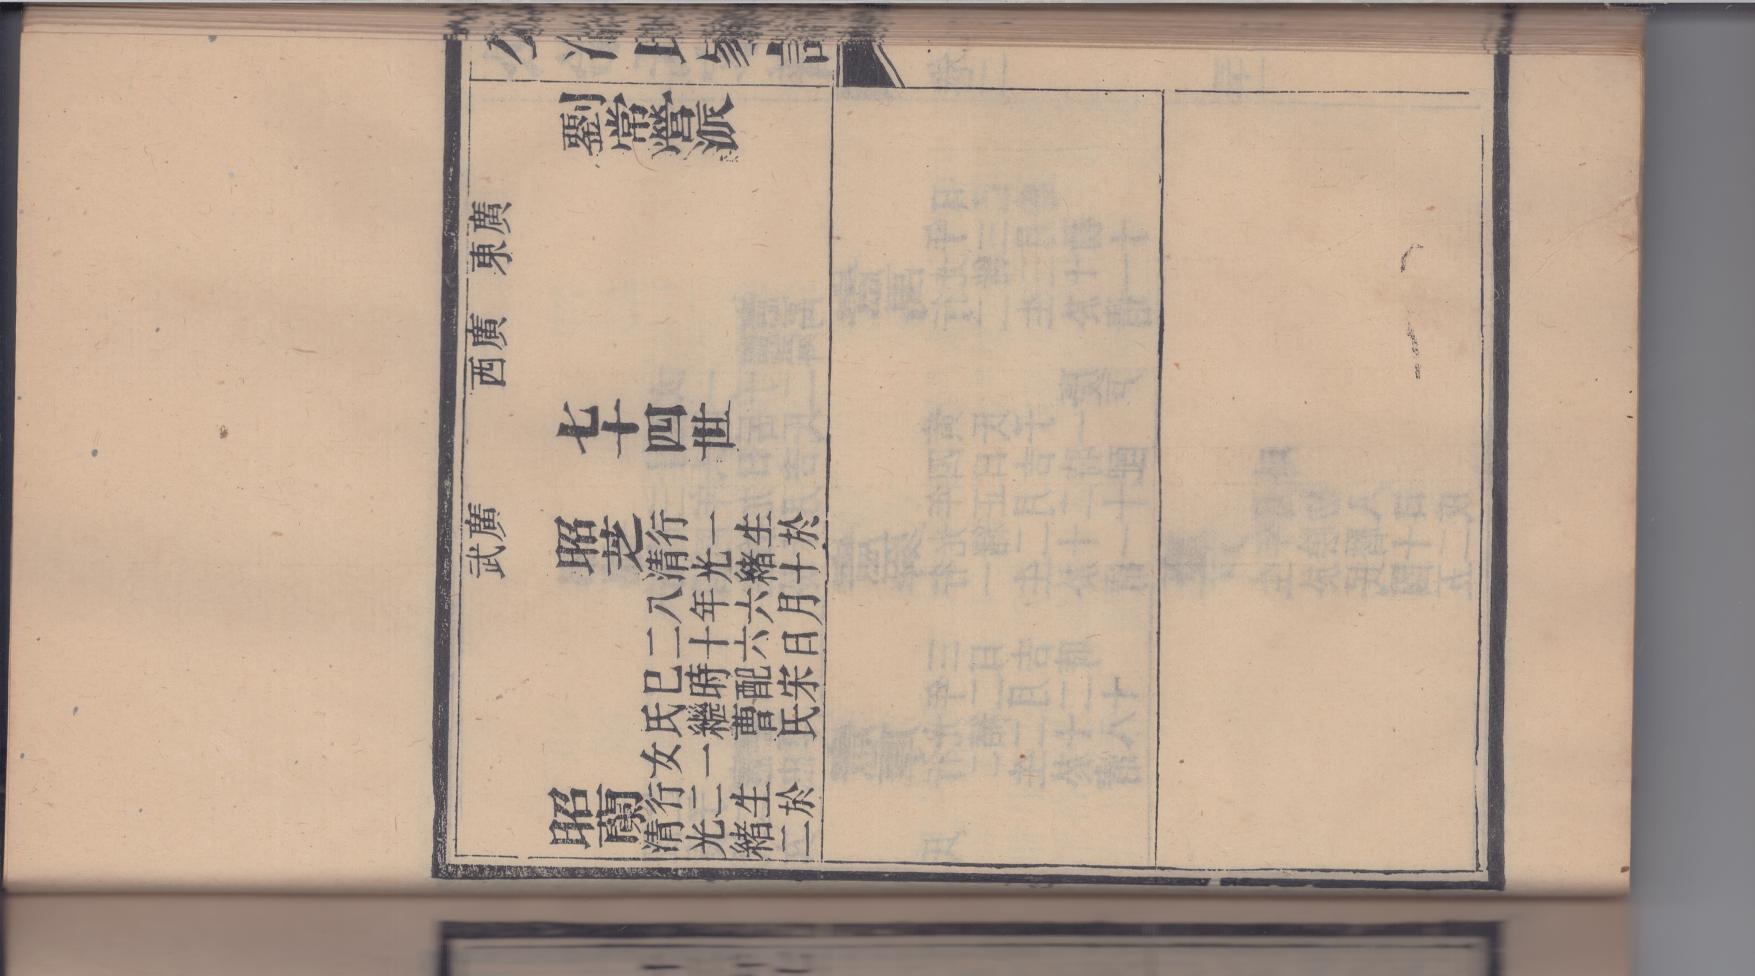 劉常營派
廣東
廣西
七十四世
廣武
昭芝
行一生於
清光緒十
八年六月
二十六日
巳時配宋
氏繼曹氏
女一
昭蘭
行二生於
清光緒二